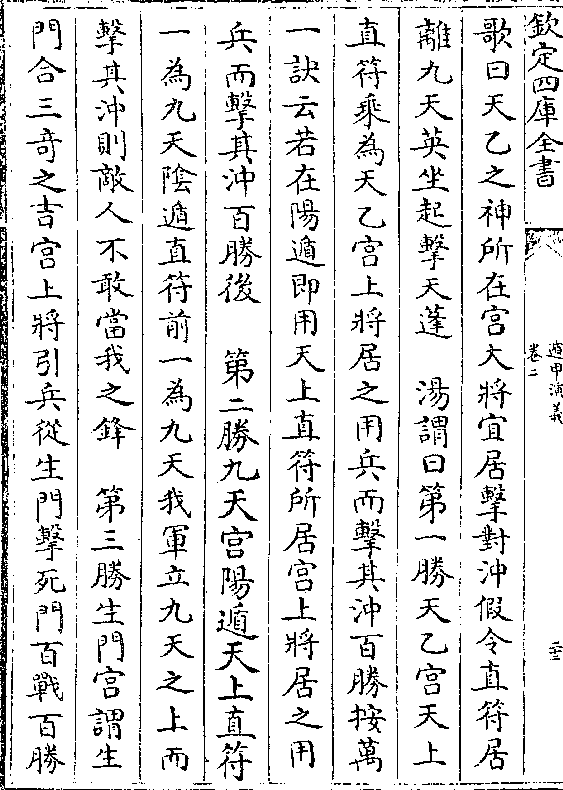 欽定四庫全書
遁甲演義
卷二
歌曰天乙之神所在宮大將宜居擊對沖假令直符居
離九天英坐起擊天蓬　湯謂曰第一勝天乙宮天上
直符乘為天乙宮上將居之用兵而擊其沖百勝按萬
一訣云若在陽遁即用天上直符所居宮上將居之用
兵而擊其沖百勝後　第二勝九天宮陽遁天上直符
一為九天陰遁直符前一為九天我軍立九天之上而
擊其沖則敵人不敢當我之鋒　第三勝生門宮謂生
門合三奇之吉宮上將引兵從生門擊死門百戰百勝